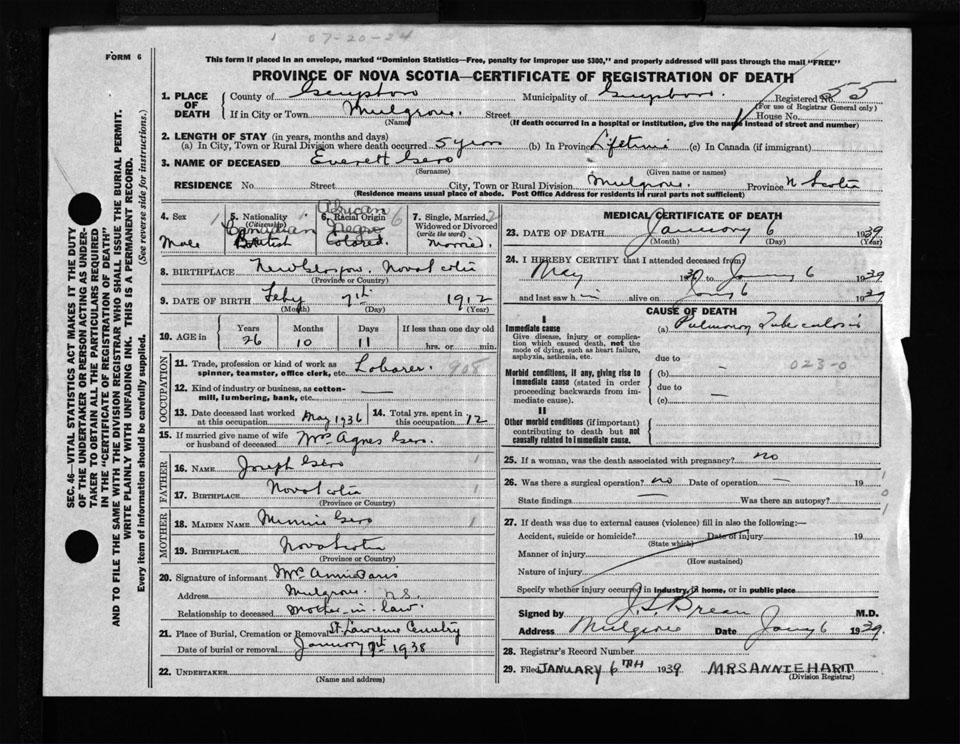 1 07-20-24
FORM 6
This form if placed in an envelope, marked "Dominion Statistics—Free, penalty for improper use $300," and properly addressed will pass through the mail "FREE"
PROVINCE OF NOVA SCOTIA—CERTIFICATE OF REGISTRATION OF DEATH
1. PLACE OF DEATH
County of Municipality of Registered No. 55
(For use of Registrar General only)
If in City or Town Mulgrave. Street House No.
(Name) (If death occurred in a hospital or institution, give the name instead of street and number)
2. LENGTH OF STAY (in years, months and days)
(a) In City, Town or Rural Division where death occurred 5 years (b) In Province Lifetime (c) In Canada (if immigrant)
3. NAME OF DECEASED Everett Gero
(Surname) (Given name or names)
RESIDENCE No. Street City, Town or Rural Division Mulgrave. Province N Scotia
(Residence means usual place of abode. Post Office Address for residents in rural parts not sufficient)
SEC. 46—VITAL STATISTICS ACT MAKES IT THE DUTY
OF THE UNDERTAKER OR PERSON ACTING AS UNDER-
TAKER TO OBTAIN ALL THE PARTICULARS REQUIRED
IN THE "CERTIFICATE OF REGISTRATION OF DEATH"
AND TO FILE THE SAME WITH THE DIVISION REGISTRAR WHO SHALL ISSUE THE BURIAL PERMIT.
WRITE PLAINLY WITH UNFADING INK. THIS IS A PERMANENT RECORD.
Every item of information should be carefully supplied. (See reverse side for instructions.)
4. Sex 1 Male
5. Nationality (Citizenship) 1 Canadian British
6. Racial Origin African 6 Negro Colored
7. Single, Married, Widowed or Divorced (write the word) 2 Married.
8. BIRTHPLACE New Glasgow. Nova Scotia
(Province or Country)
9. DATE OF BIRTH Feby 7th 1912
(Month) (Day) (Year)
10. AGE in Years Months Days If less than one day
26 10 11 hrs. or min.
OCCUPATION
11. Trade, profession or kind of work as spinner, teamster, office clerk, etc. Laborer. 908
12. Kind of industry or business, as cotton-mill, lumbering, bank, etc. —
13. Date deceased last worked at this occupation May 1936 14. Total yrs. spent in this occupation 12
15. If married give name of wife or husband of deceased Mrs Agnes Gero.
FATHER
16. NAME Joseph Gero 1
17. BIRTHPLACE Nova Scotia 1
(Province or Country)
MOTHER
18. MAIDEN NAME Minnie Gero 1
19. BIRTHPLACE Nova Scotia
(Province or Country)
20. Signature of informant Mrs Annie Paris
Address Mulgrave N.S.
Relationship to deceased Mother-in-law.
21. Place of Burial, Cremation or Removal St Lawrence Cemetry
Date of burial or removal January 1938
22. UNDERTAKER
(Name and address)
MEDICAL CERTIFICATE OF DEATH
23. DATE OF DEATH January 6 1939
(Month) (Day) (Year)
24. I HEREBY CERTIFY that I attended deceased from
May to Jany 6 1939
and last saw him alive on Jany 6 19
CAUSE OF DEATH
I
Immediate cause (a) Pulmonary Tuberculosis
Give disease, injury or complication which caused death, not the mode of dying, such as heart failure, asphyxia, asthenia, etc.
due to 023-0
Morbid conditions, if any, giving rise to immediate cause (stated in order proceeding backwards from immediate cause).
(b) —
due to
(c) —
II
Other morbid conditions (if important) contributing to death but not causally related to immediate cause.
25. If a woman, was the death associated with pregnancy? no
26. Was there a surgical operation? no Date of operation — 19 1
State findings — Was there an autopsy? 0 1
27. If death was due to external causes (violence) fill in also the following:—
Accident, suicide or homicide? Date of injury 19
(State which)
Manner of injury
(How sustained)
Nature of injury
Specify whether injury occurred in industry, in home, or in public place
Signed by M.D.
Address Mulgrave Date Jany 6 1939.
28. Registrar's Record Number
29. Filed JANUARY 6TH 1939 MRS ANNIE HART
(Division Registrar)